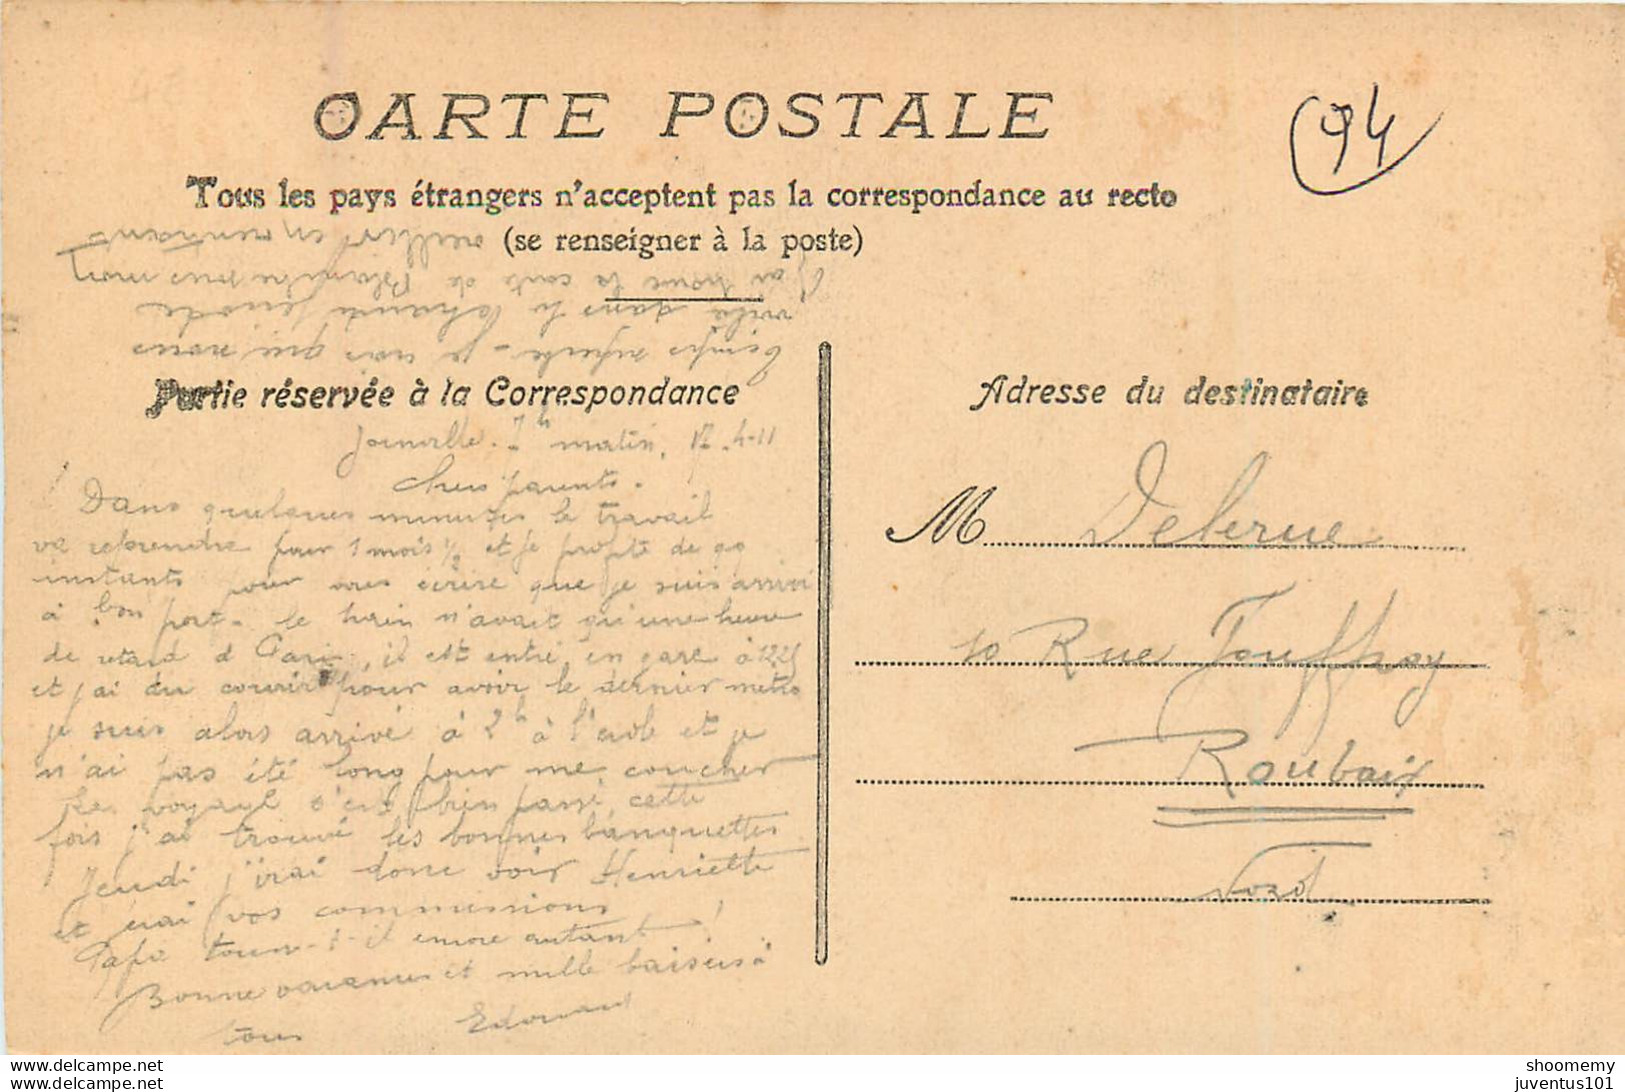 CARTE POSTALE
94
Tous les pays étrangers n'acceptent pas la correspondance au recto
(se renseigner à la poste)
Partie réservée à la Correspondance
Adresse du destinataire
Joinville. 7h matin, 17-4-11
Chers parents.
Dans quelques minutes le travail
va reprendre pour 1 mois 1/2 et je profite de qq
instants pour vous écrire que je suis arrivé
à bon port. le train n'avait qu'une heure
de retard à Paris, il est entré en gare à 12.25
et j'ai du courir pour avoir le dernier métro
je suis alors arrivé à 2h à l'école et je
n'ai pas été long pour me coucher
Le voyage s'est bien passé, cette
fois j'ai trouvé les bonnes banquettes
Jeudi j'irai donc voir Henriette
et ferai vos commissions
Papa tousse-t-il encore autant !
Bonne vacances et mille baisers à
tous Edouard
temps superbe - je vais qui
voilà dans la grande période
J'ai trouvé la carte de Blanche sous mon
oreiller en rentrant
M Delerue
10 Rue Jouffroy
Roubaix
Nord
shoomemy
juventus101
www.delcampe.net